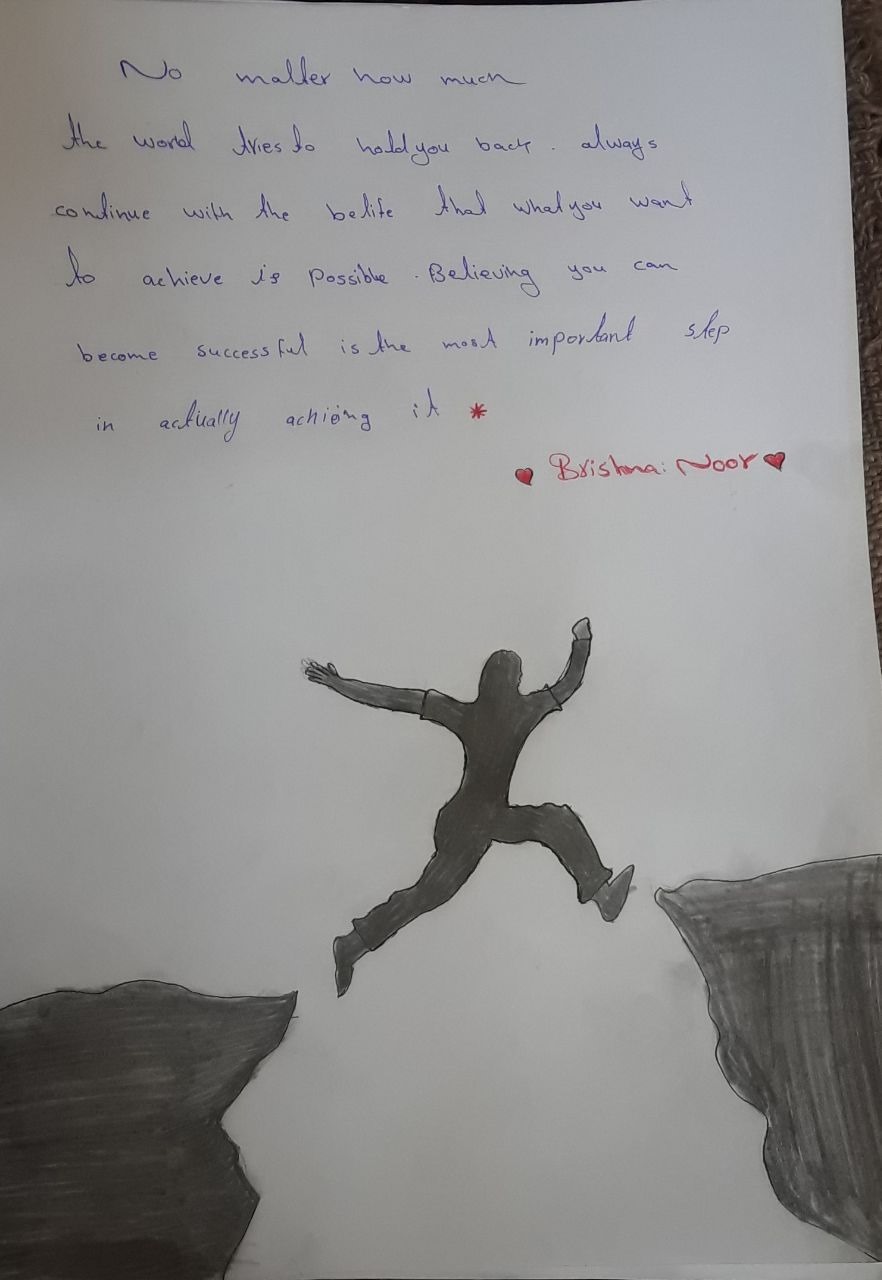 No matter how much
the world tries to hold you back. always
continue with the belife that what you want
to achieve is possible. Believing you can
become successful is the most important step
in actually achieving it *
♥ Brishna: Noor ♥